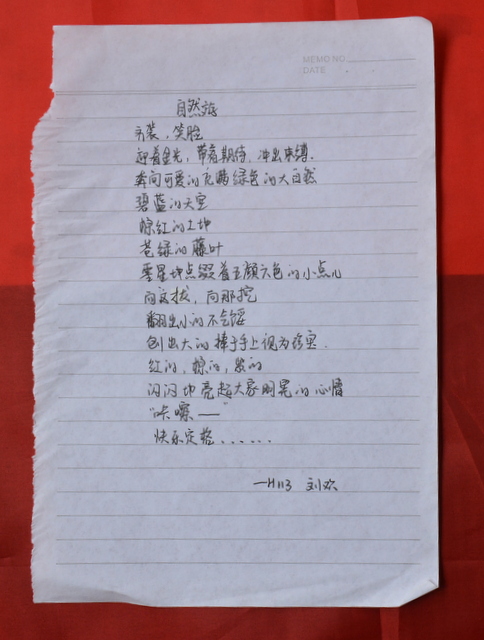 MEMO NO.
DATE
自然旅
行装，笑脸
迎着金光，带着期待，冲出束缚.
奔向可爱的充满绿色的大自然
碧蓝的天空
棕红的土地
苍绿的藤叶
零星地点缀着五颜六色的小点儿
向这拔，向那挖
翻出小的不气馁
刨出大的捧于手上视为珍宝
红的，棕的，紫的
闪闪地亮起大家明晃的心情
"咔嚓——"
快乐定格......
—H113 刘欢